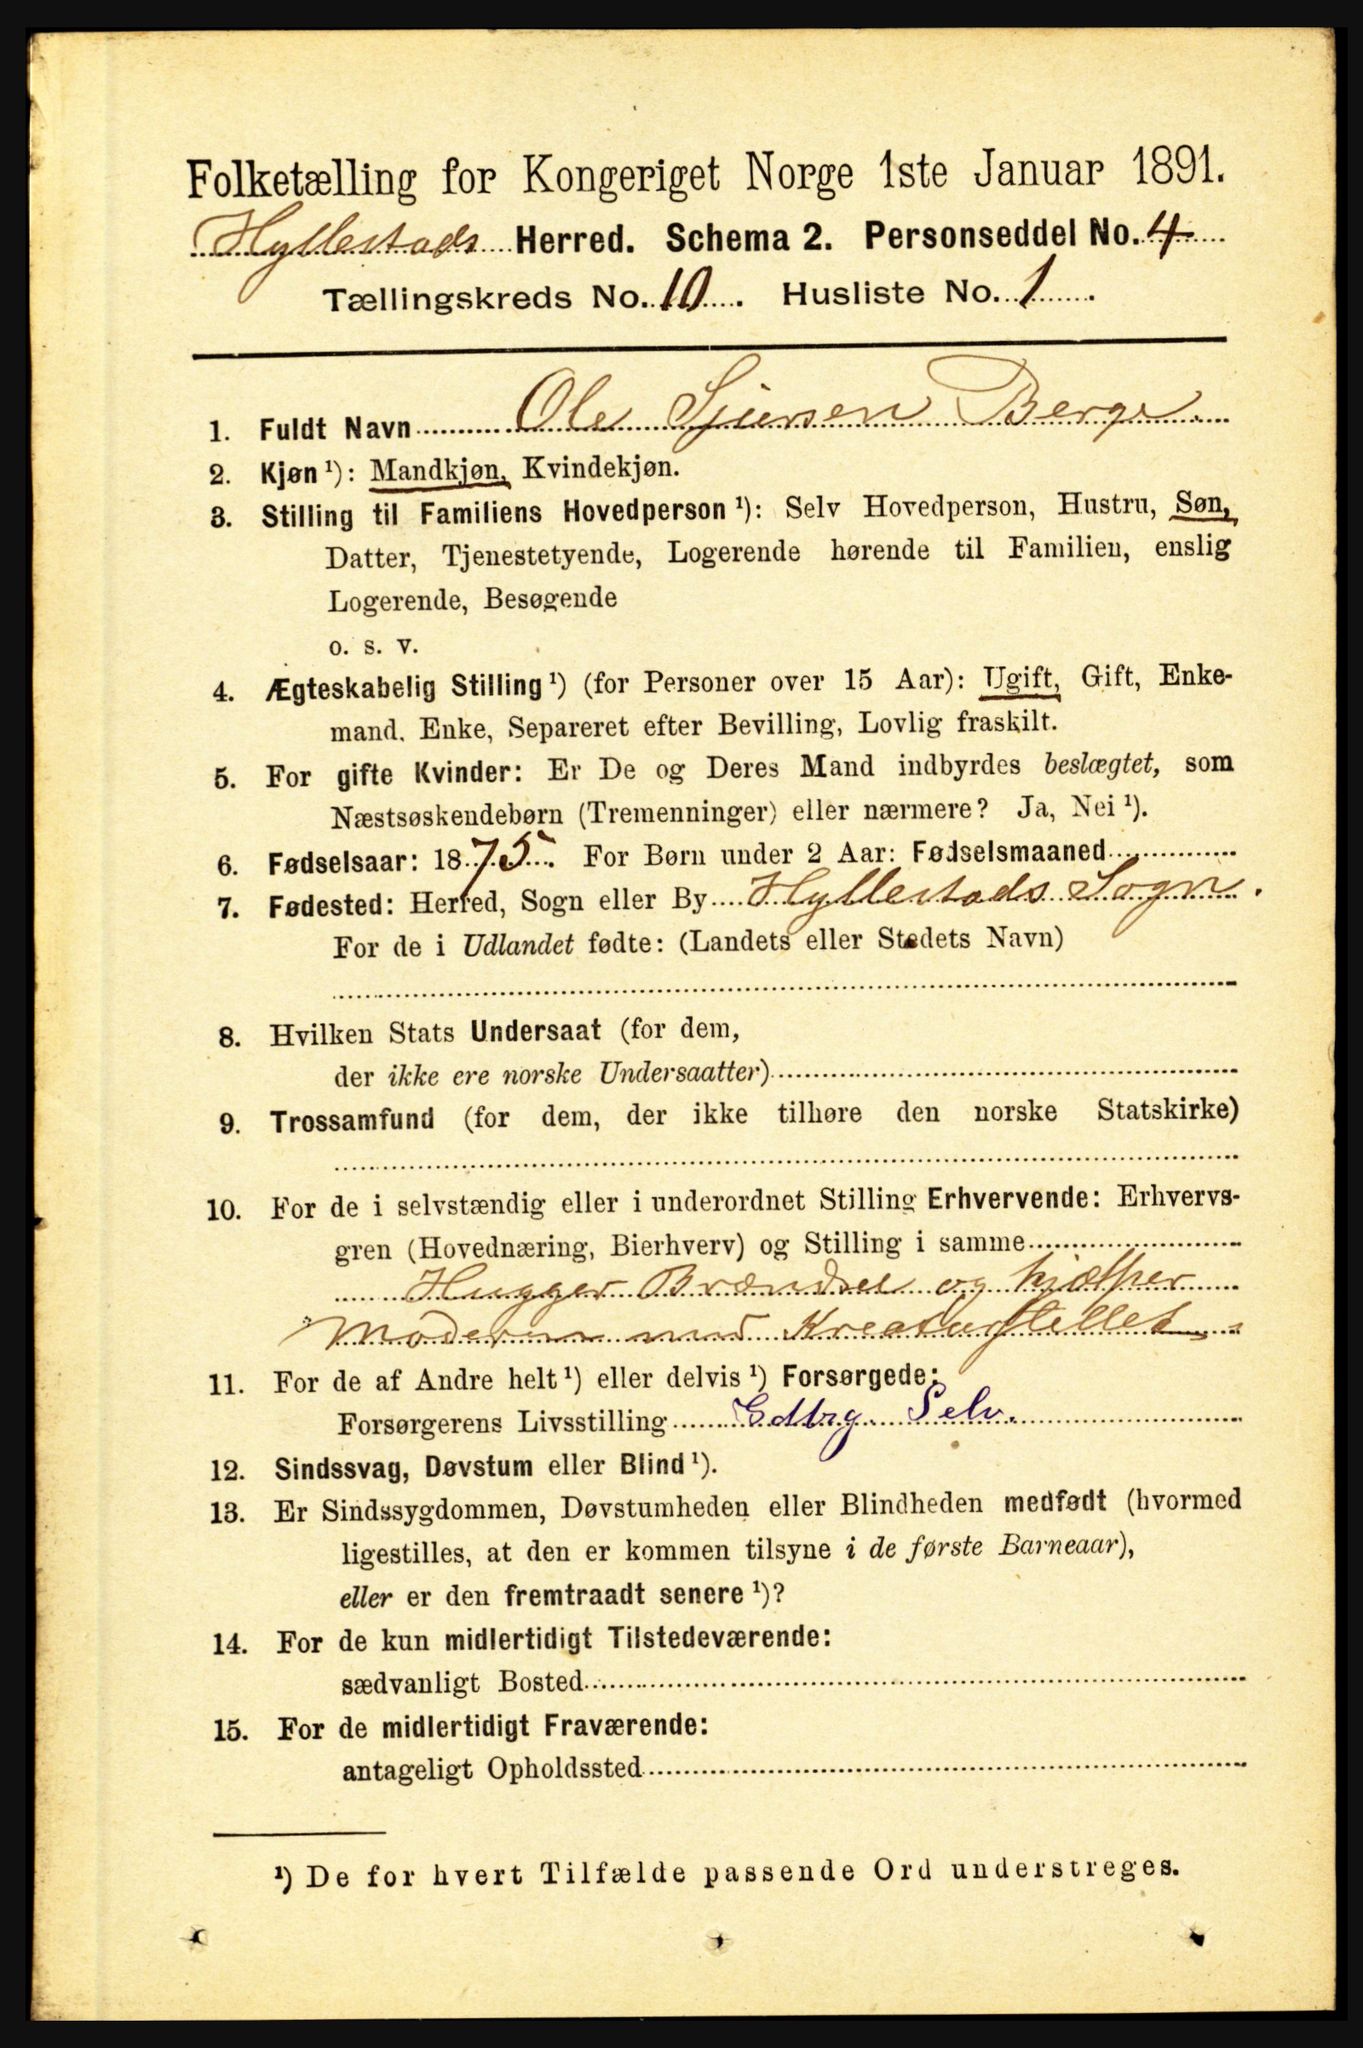 Folketælling for Kongeriget Norge 1ste Januar 1891.
Hyllestads Herred. Schema 2. Personseddel No. 4
Tællingskreds No. 10. Husliste No. 1.
1. Fuldt Navn Ole Sjursen Berge.
2. Kjøn ¹): Mandkjøn, Kvindekjøn.
3. Stilling til Familiens Hovedperson ¹): Selv Hovedperson, Hustru, Søn,
Datter, Tjenestetyende, Logerende hørende til Familien, enslig
Logerende, Besøgende
o. s. v.
4. Ægteskabelig Stilling ¹) (for Personer over 15 Aar): Ugift, Gift, Enke-
mand, Enke, Separeret efter Bevilling, Lovlig fraskilt.
5. For gifte Kvinder: Er De og Deres Mand indbyrdes beslægtet, som
Næstsøskendebørn (Tremenninger) eller nærmere? Ja, Nei ¹).
6. Fødselsaar: 1875. For Børn under 2 Aar: Fødselsmaaned
7. Fødested: Herred, Sogn eller By Hyllestads Sogn.
For de i Udlandet fødte: (Landets eller Stedets Navn)
8. Hvilken Stats Undersaat (for dem,
der ikke ere norske Undersaatter)
9. Trossamfund (for dem, der ikke tilhøre den norske Statskirke)
10. For de i selvstændig eller i underordnet Stilling Erhvervende: Erhvervs-
gren (Hovednæring, Bierhverv) og Stilling i samme
Hugger Brændsel og hjælper
Moderen med Kreaturstellet
11. For de af Andre helt ¹) eller delvis ¹) Forsørgede:
Forsørgerens Livsstilling Gdbrg. Selv.
12. Sindssvag, Døvstum eller Blind ¹).
13. Er Sindssygdommen, Døvstumheden eller Blindheden medfødt (hvormed
ligestilles, at den er kommen tilsyne i de første Barneaar),
eller er den fremtraadt senere ¹)?
14. For de kun midlertidigt Tilstedeværende:
sædvanligt Bosted
15. For de midlertidigt Fraværende:
antageligt Opholdssted
¹) De for hvert Tilfælde passende Ord understreges.